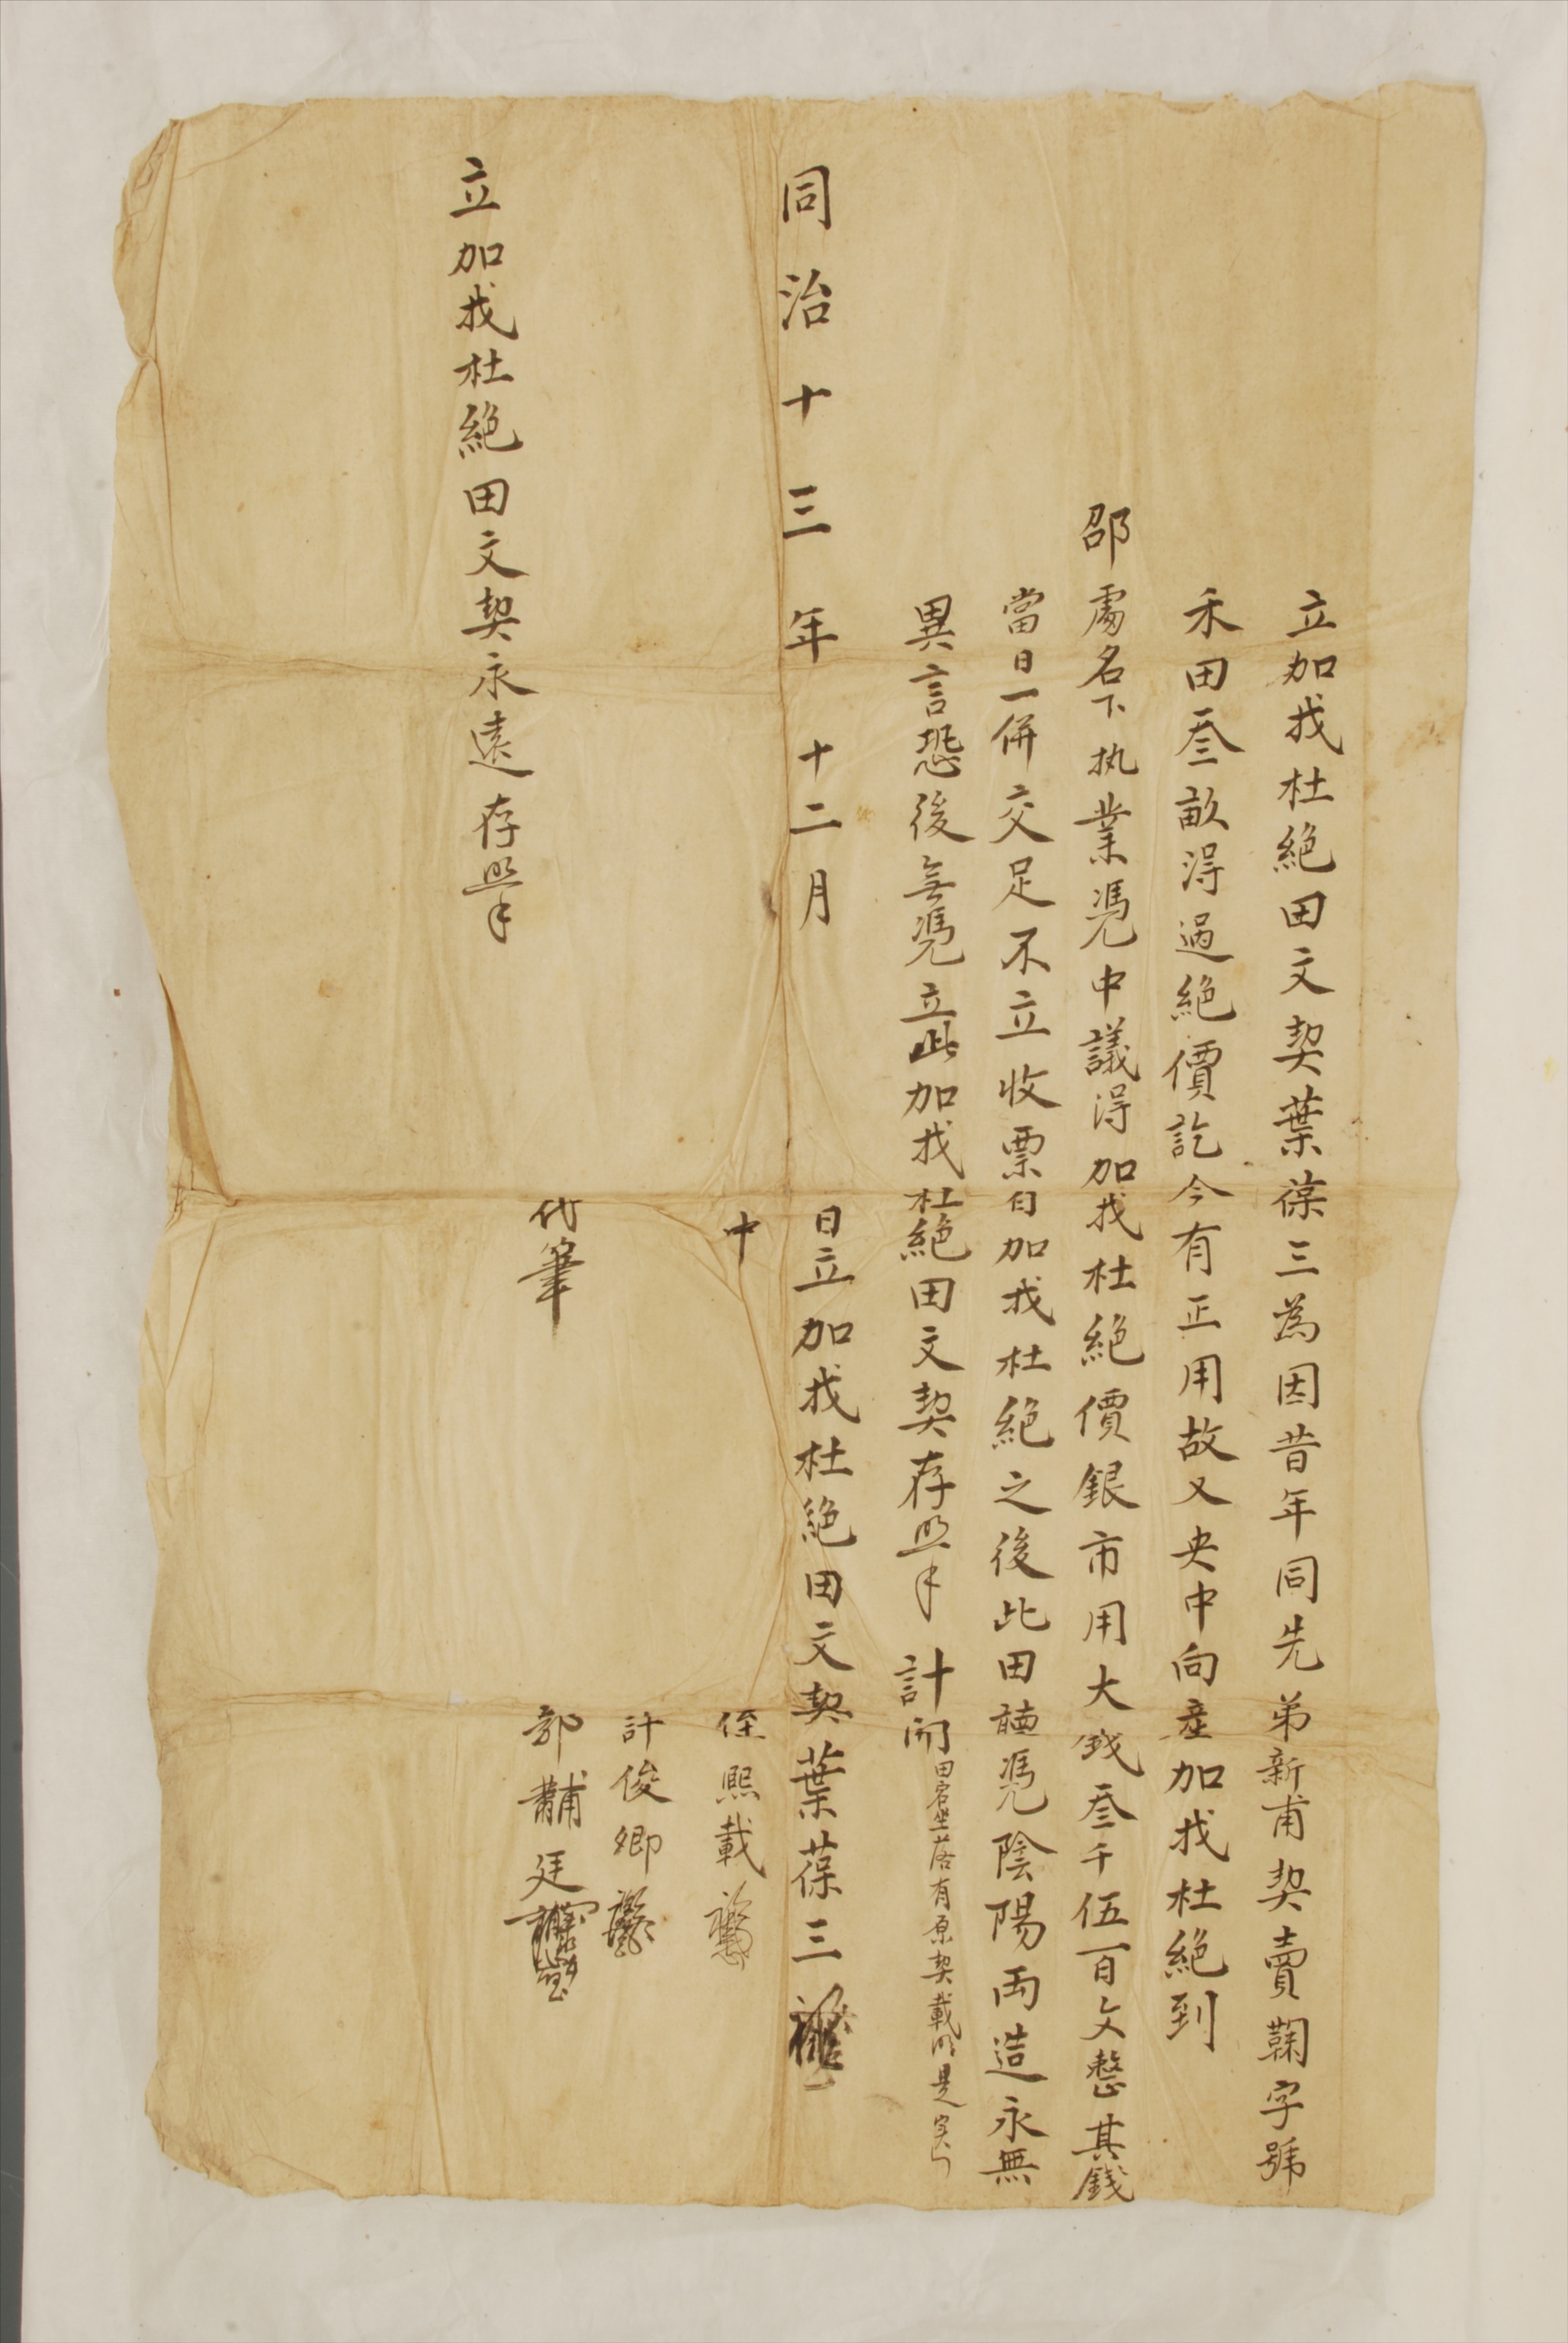 立加找杜絕田文契葉葆三為因昔年同先弟新甫契賣鞠字號
禾田叁畝淂過絕價訖今有正用故又央中向產加找杜絕到
邵處名下执業凴中議淂加找杜絕價銀市用大錢叁千伍百文整其錢
當日一併交足不立收票自加找杜絕之後此田聽凴陰陽両造永無
異言恐後無凴立此加找杜絕田文契存照 計開田宕坐落有原契載明是实
同治十三年十二月 日立加找杜絕田文契葉葆三
中 侄熙載
計俊卿
代筆 郭黼廷
立加找杜絕田文契永遠存照